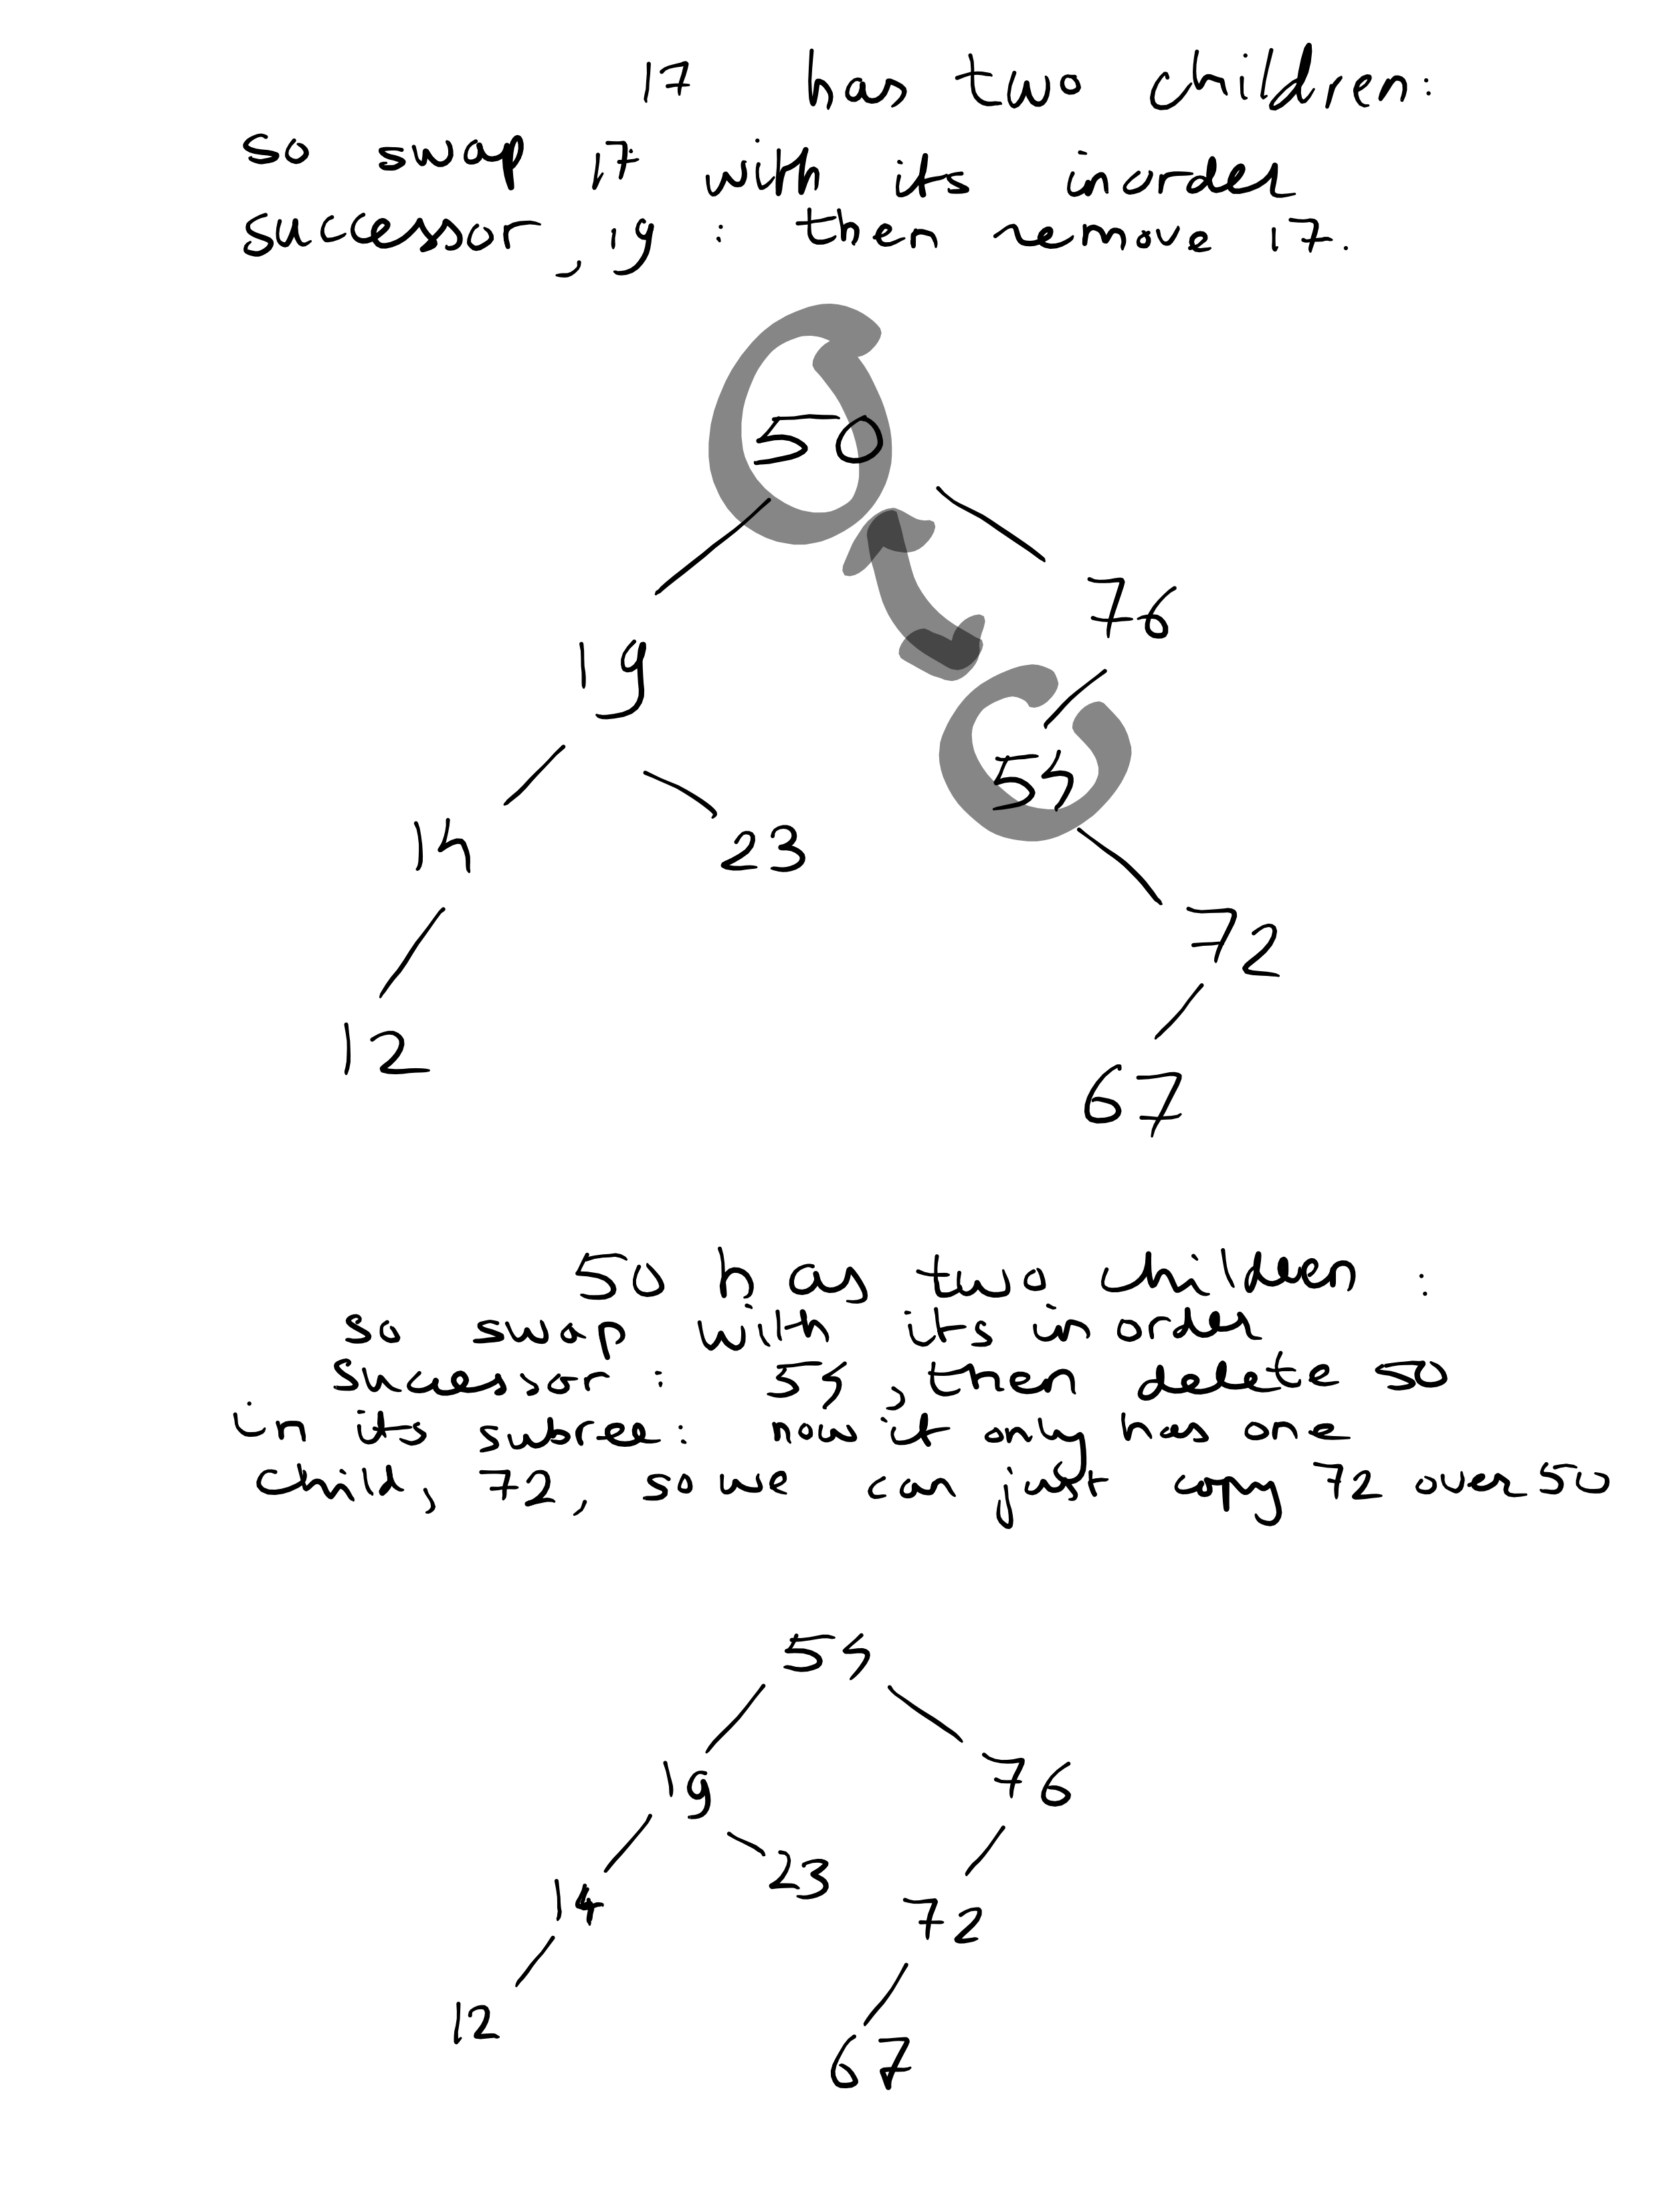 17 has two children:
so swap 17 with its inorder
successor, 19 : then remove 17.
50
76
19
54
14
23
72
12
67
50 has two children :
so swap with its inorder
successor : 54, then delete 50
in its subree: now it only has one
child, 72, so we can just copy 72 over 50
54
19
76
14
23
72
12
67